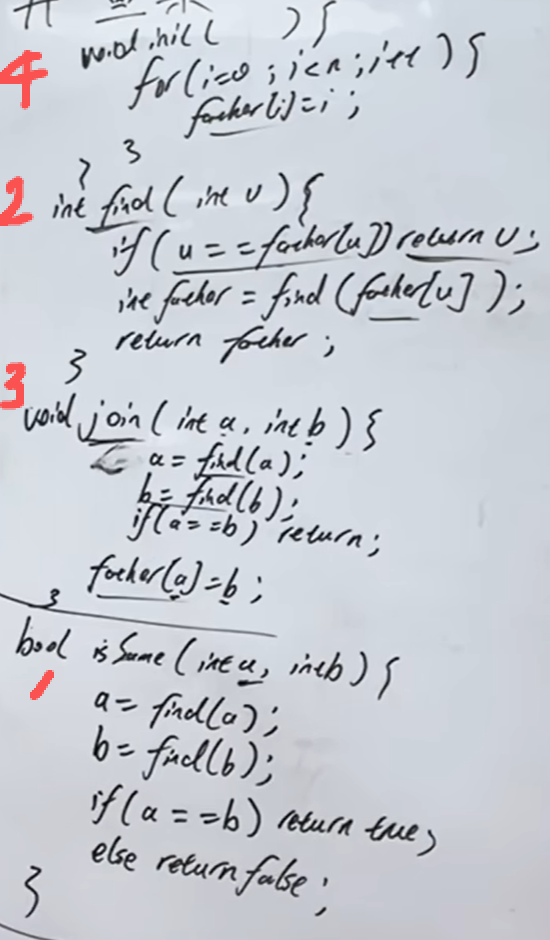 4
void init( ){
for(i=0; i<n; i++){
father[i]=i;
}
}
2
int find(int u){
if(u==father[u]) return u;
int father = find(father[u]);
return father;
}
3
void join(int a, int b){
a = find(a);
b = find(b);
if(a==b) return;
father[a]=b;
}
bool isSame(int a, int b){
1
a = find(a);
b = find(b);
if(a==b) return true;
else return false;
}